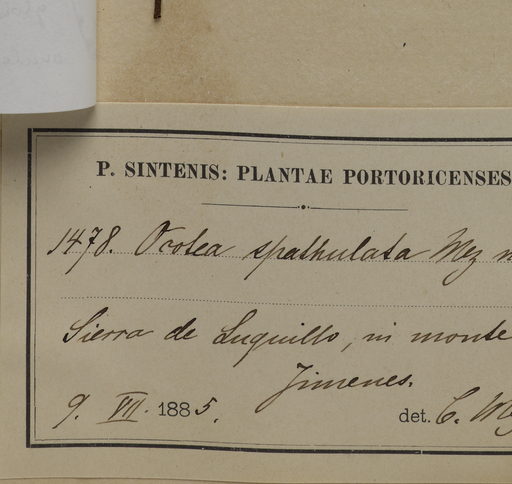 P. SINTENIS: PLANTAE PORTORICENSES
1478. Ocotea spathulata Mez n
Sierra de Luquillo, in monte
Jimenes.
9. VII. 1885. det. C. Me